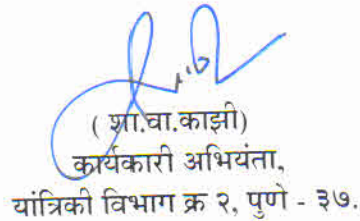 ( शा.वा.काझी)
कार्यकारी अभियंता,
यांत्रिकी विभाग क्र २, पुणे - ३७.